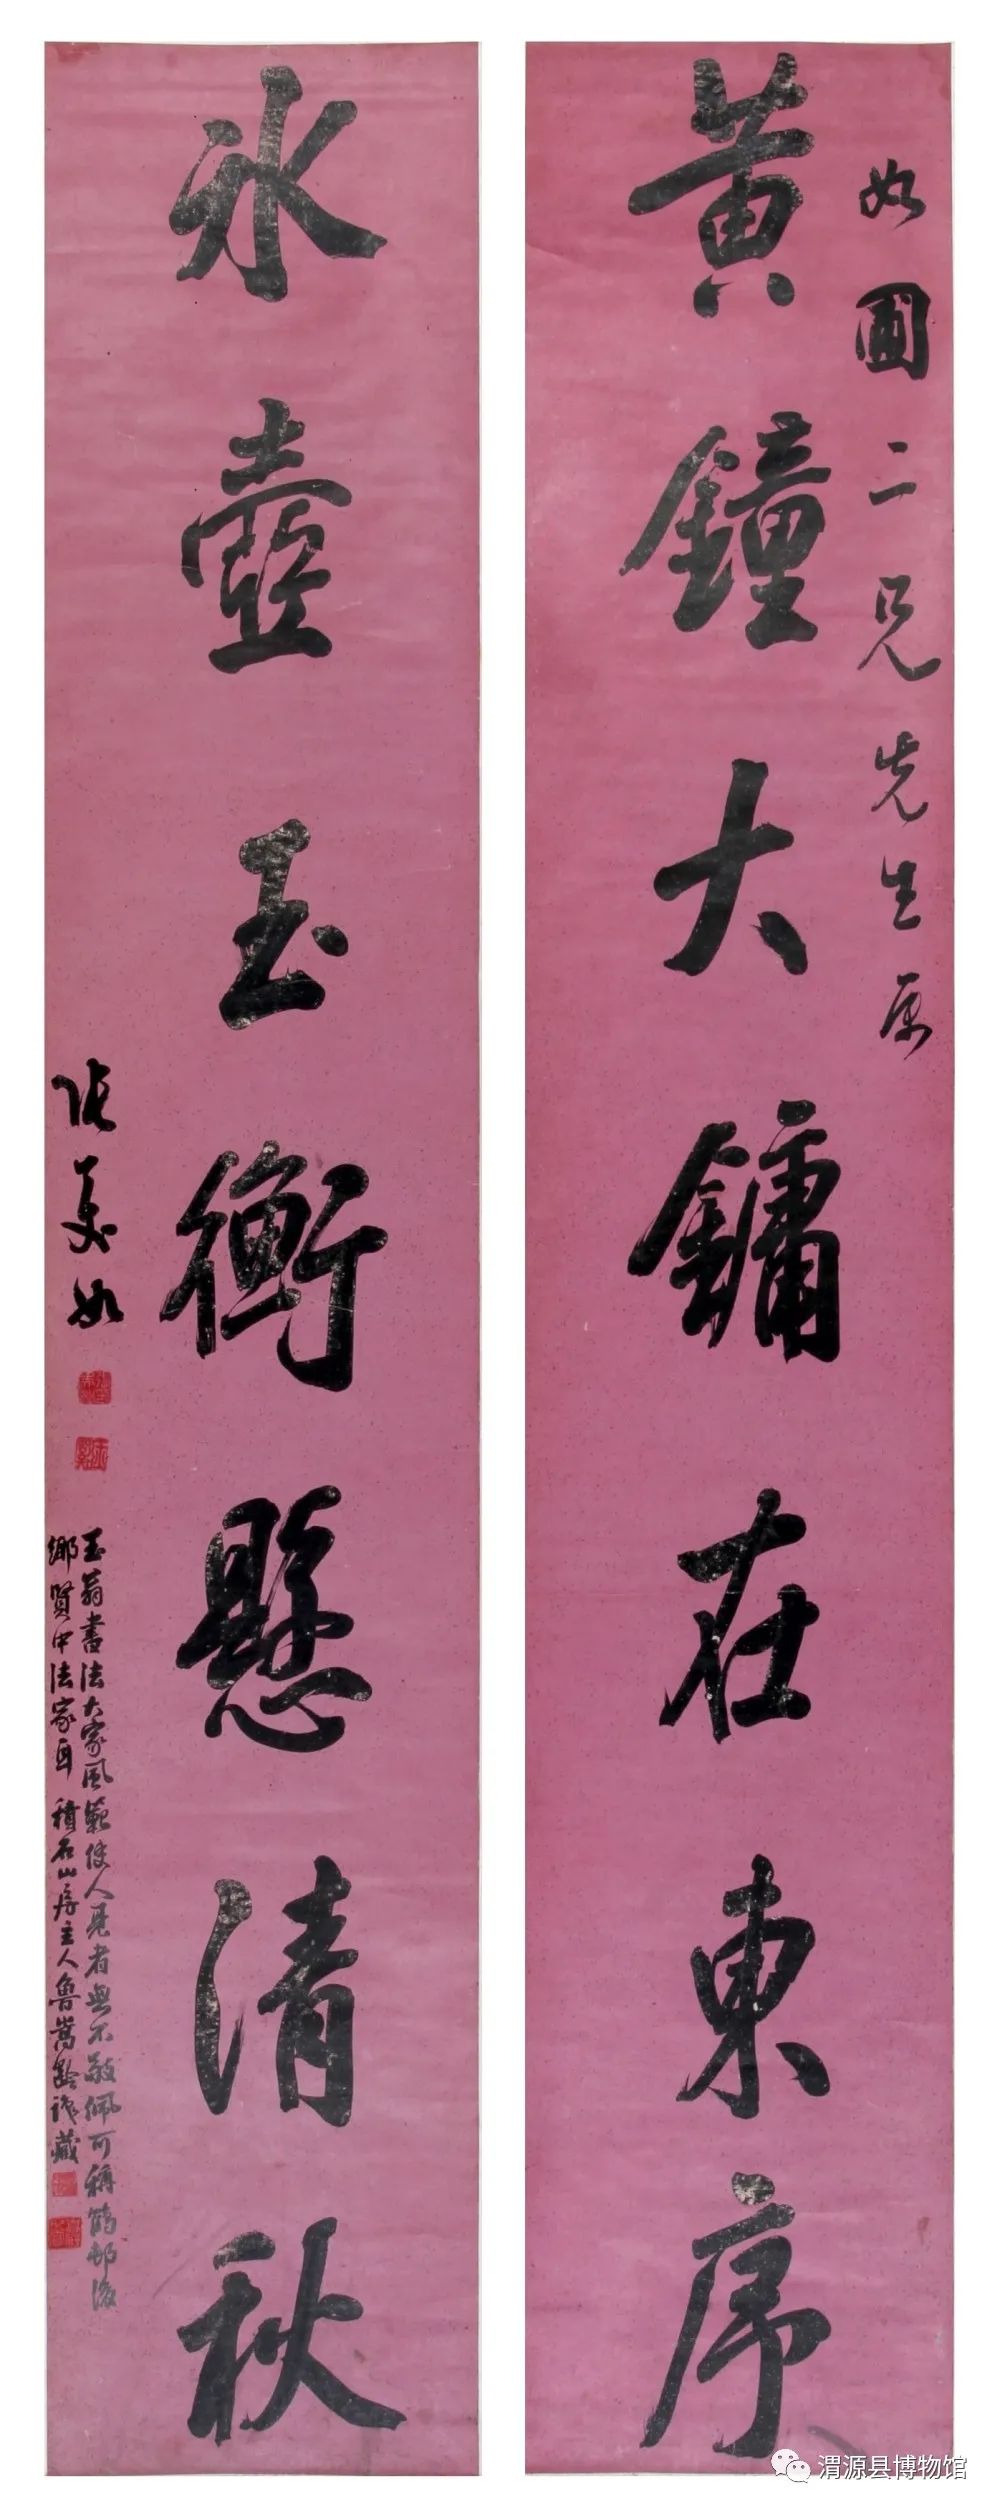 如圃二兄先生属
黄鐘大鏞在東序
冰壺玉衡懸清秋
張美如
玉翁書法大家風範使人見者無不敬佩可稱鶴邨後
鄉賢中法家耳 積石山房主人魯嵩齡謹藏
渭源县博物馆